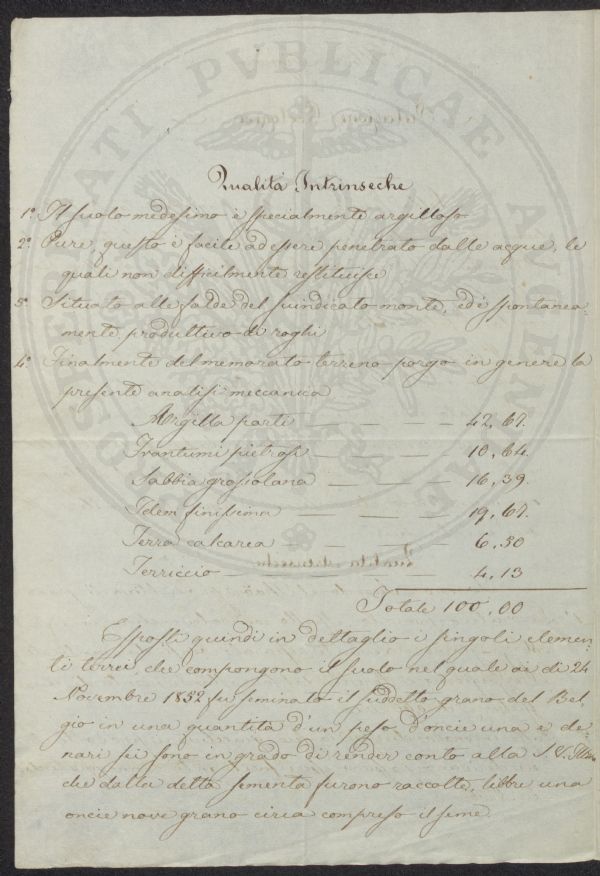 Qualità Intrinseche
1º Il suolo medesimo è specialmente argilloso
2º Pure, questo è facile ad essere penetrato dalle acque, le
quali non difficilmente restituisce
3º Situato alle falde del suindicato monte, ed è spontanea-
mente produttivo di roghi
4º Finalmente del memorato terreno porgo in genere la
presente analisi meccanica
Argilla parti — — — — 42,67.
Frantumi pietrosi — — — — 10,64.
Sabbia grossolana — — — — 16,39.
Idem finissima — — — — 19,67.
Terra calcarea — — — — 6,50
Terriccio — — — — 4,13
Totale 100,00
Esposti quindi in dettaglio i singoli elemen-
ti terrei che compongono il suolo nel quale ai dì 24
Novembre 1852 fu seminato il suddetto grano del Bel-
gio in una quantità d'un peso d'oncie una e de-
nari sei sono in grado di render conto alla S. V. Illma
che dalla detta sementa furono raccolte, libbre una
oncie nove grano circa compreso il seme